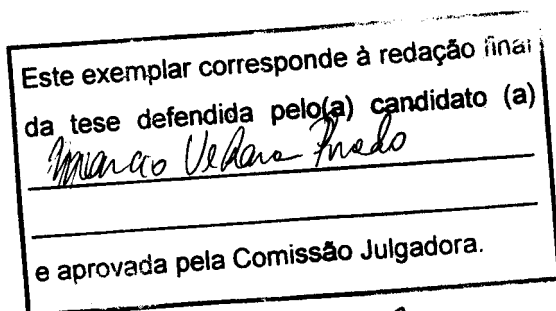 Este exemplar corresponde à redação final
da tese defendida pelo(a) candidato (a)
Marcio Prado
e aprovada pela Comissão Julgadora.